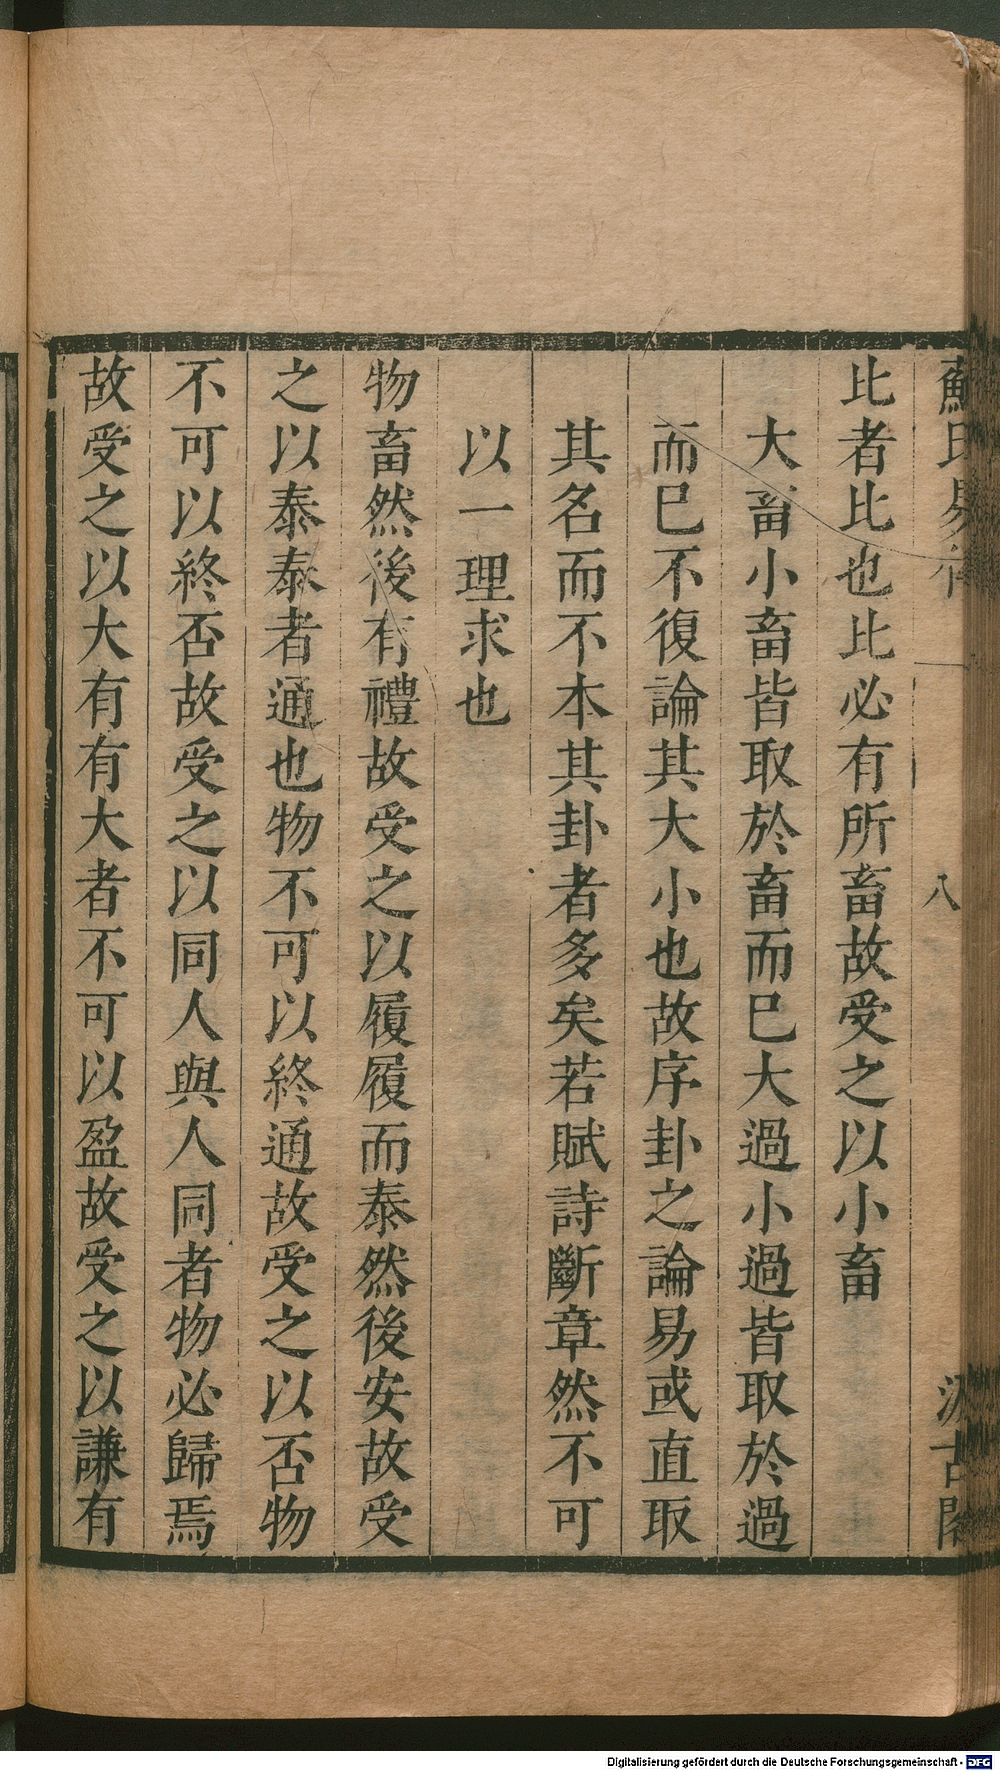 蘇氏易傳
八
汲古閣
比者比也比必有所畜故受之以小畜
大畜小畜皆取於畜而巳大過小過皆取於過
而巳不復論其大小也故序卦之論易或直取
其名而不本其卦者多矣若賦詩斷章然不可
以一理求也
物畜然後有禮故受之以履履而泰然後安故受
之以泰泰者通也物不可以終通故受之以否物
不可以終否故受之以同人與人同者物必歸焉
故受之以大有有大者不可以盈故受之以謙有
Digitalisierung gefördert durch die Deutsche Forschungsgemeinschaft - DFG